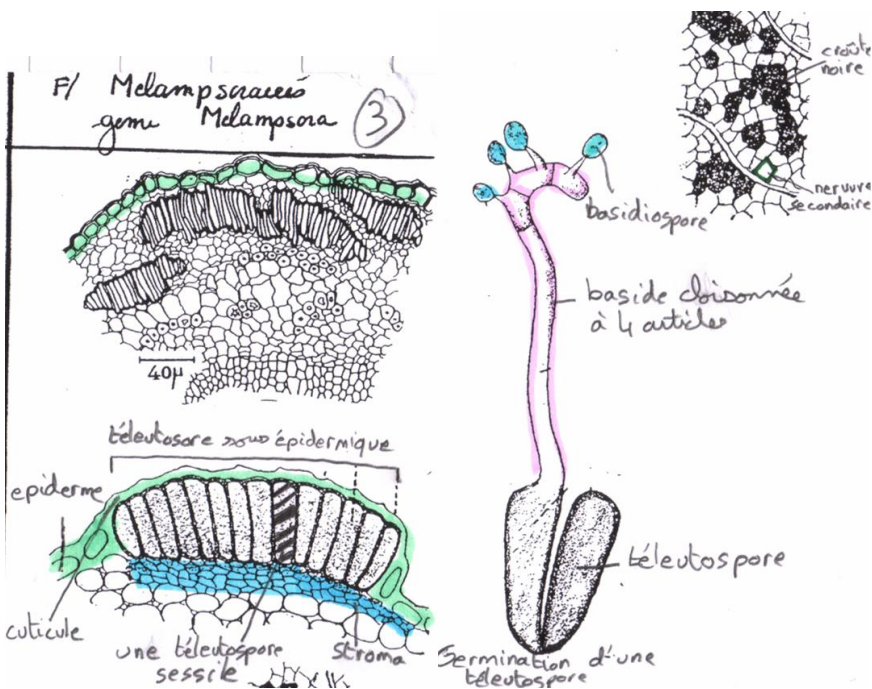 F/ Melampsoracées
genre Melampsora
3
40µ
téleutosore sous épidermique
epiderme
cuticule
une téleutospore
sessile
stroma
basidiospore
baside cloisonnée
à 4 articles
téleutospore
Germination d'une
téleutospore
croûte
noire
nervure
secondaire